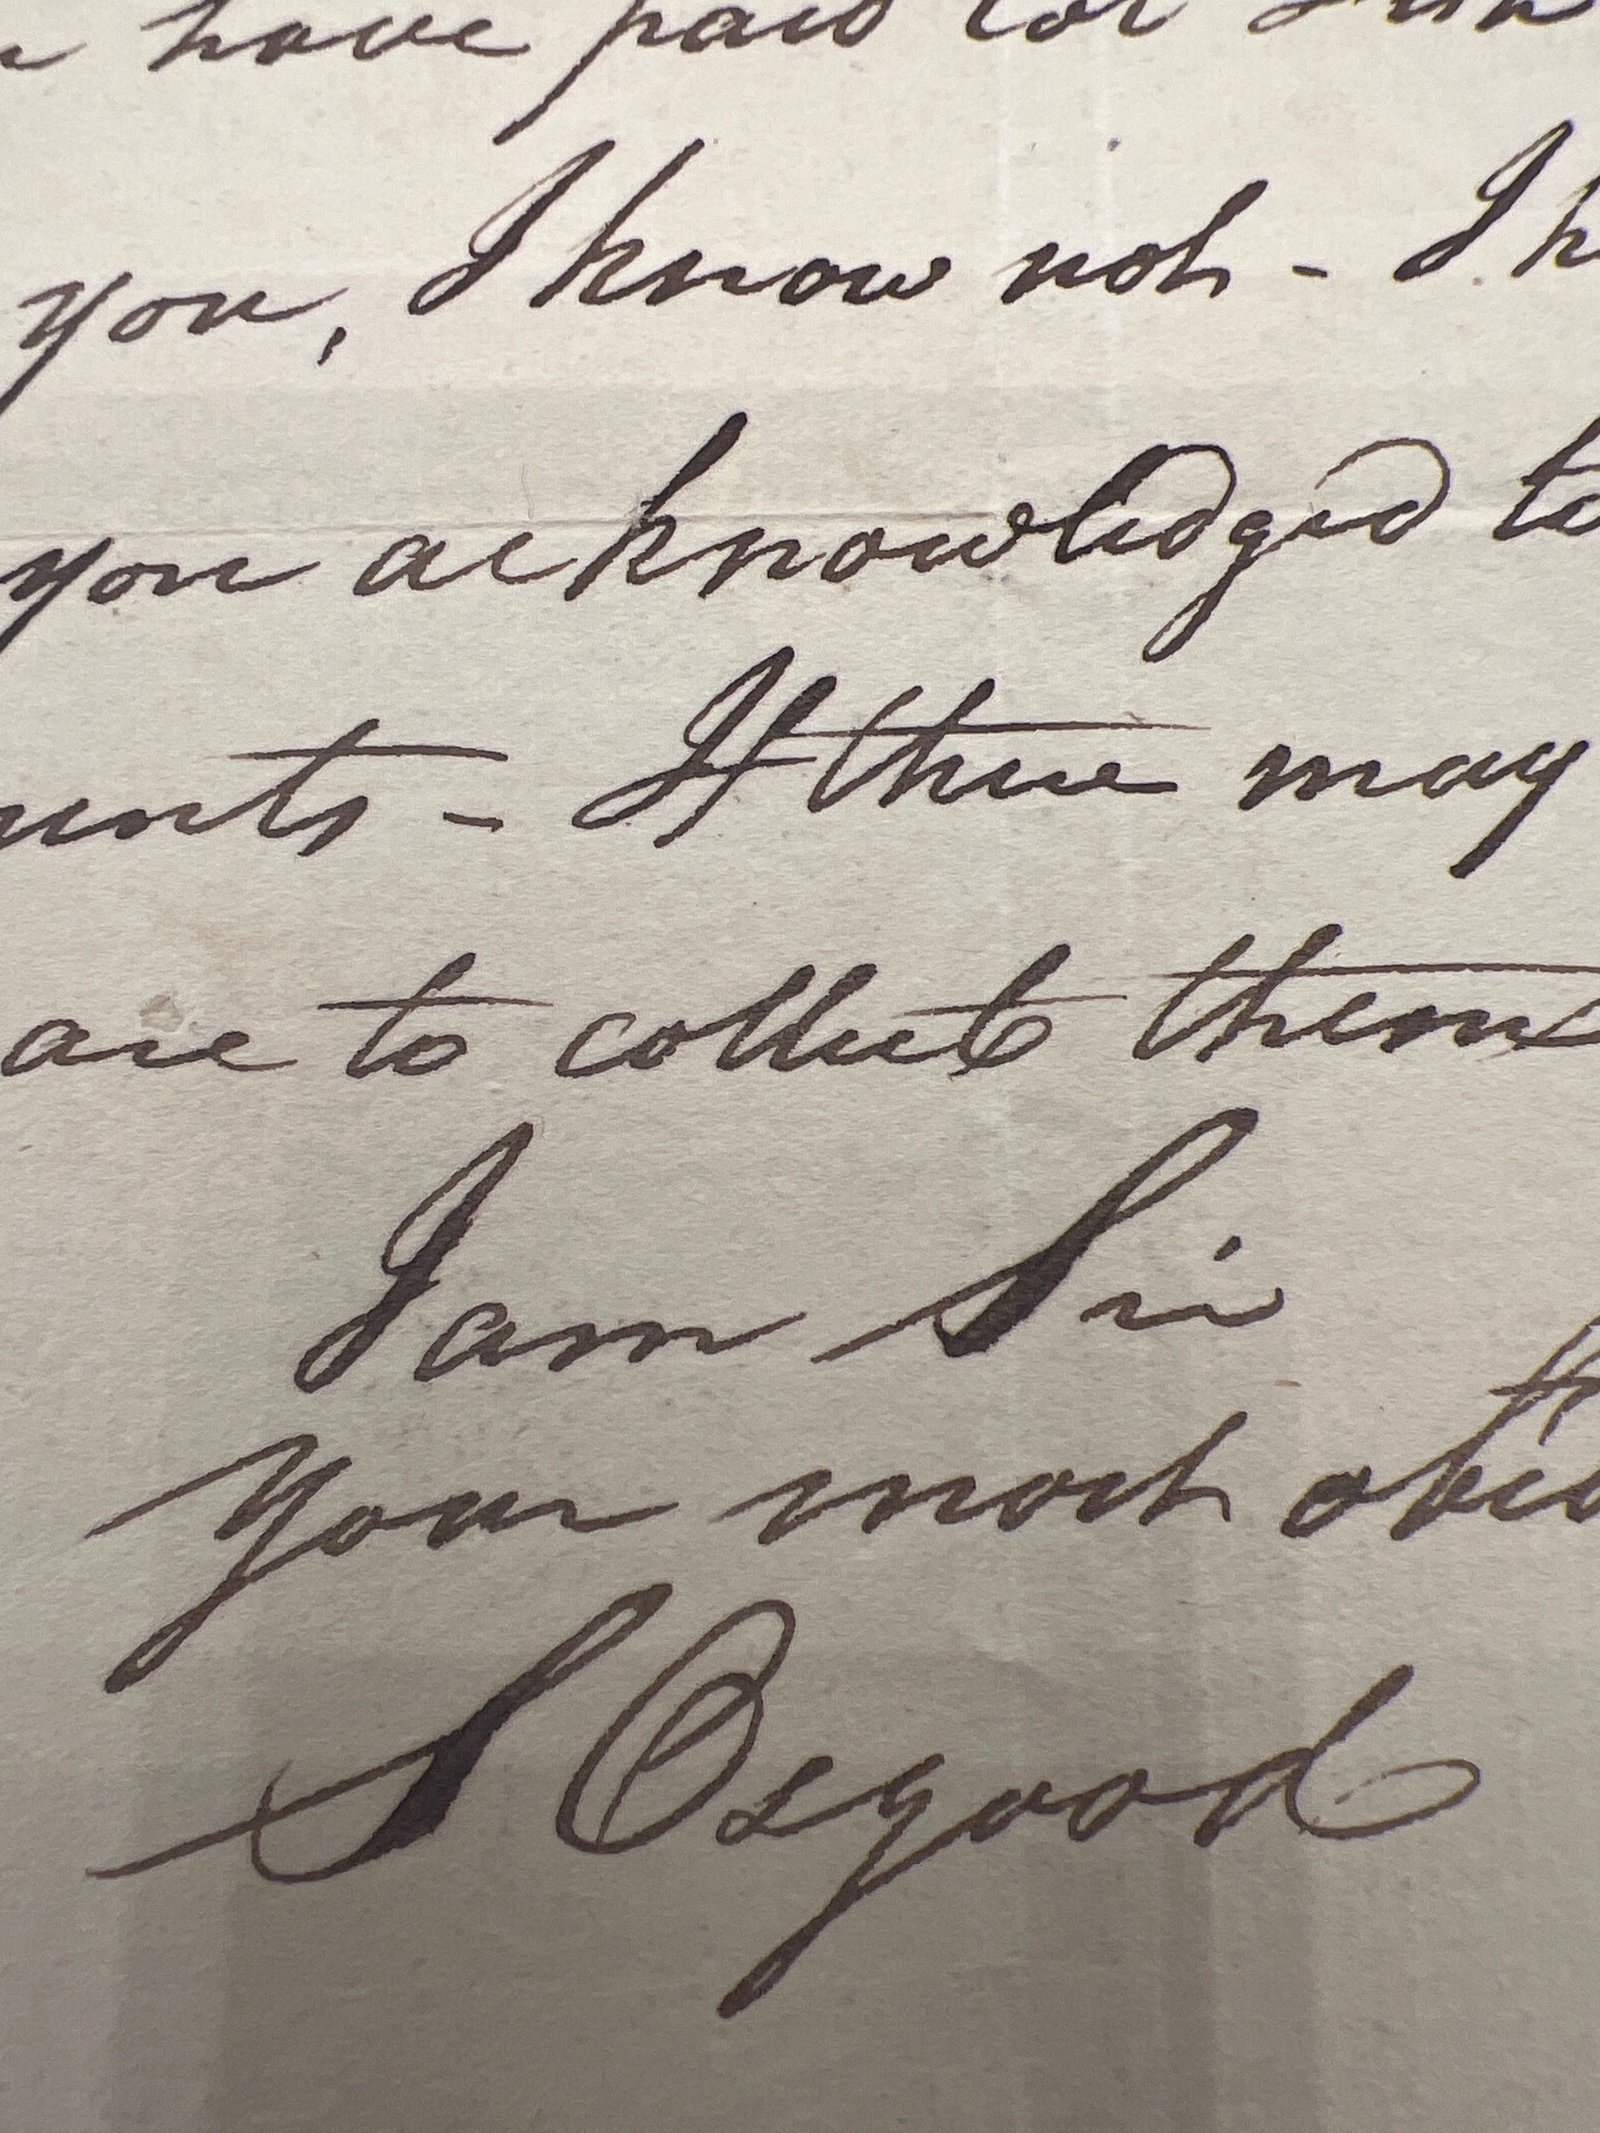 have paid for
you, I know not - I h
you acknowledged to
unts - If there may
are to collect them
I am Sir
Your most obed
S Osgood